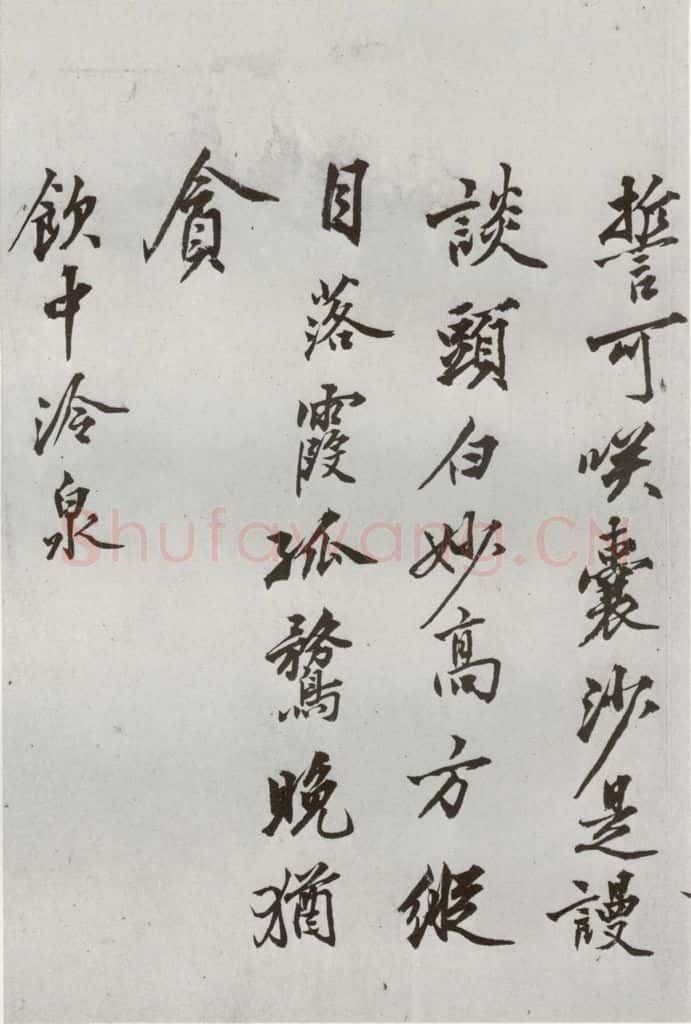 誓可咲囊沙是謾
談頭白妙高方縱
目落霞孤鶩晚猶
貪
飲中泠泉
Shufawang.CN